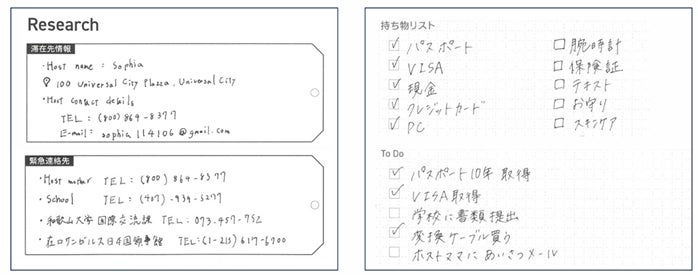 Research
滞在先情報
・Host name : Sophia
100 Universal City Plazza, Universal City
・Host contact details
TEL : (800) 864-8377
E-mail : sophia 114106 @gmail.com
緊急連絡先
・Host mother TEL : (800) 864-8377
・School TEL : -939-5277
・和歌山大学 国際交流課 TEL : 073-457-752
・在ロサンゼルス日本国領事館 TEL : (1-213) 617-6700
持ち物リスト
パスポート
VISA
現金
クレジットカード
PC
腕時計
保険証
テキスト
お守り
スキンケア
To Do
パスポート10年 取得
VISA取得
学校に書類提出
変換ケーブル買う
ホストママにあいさつメール